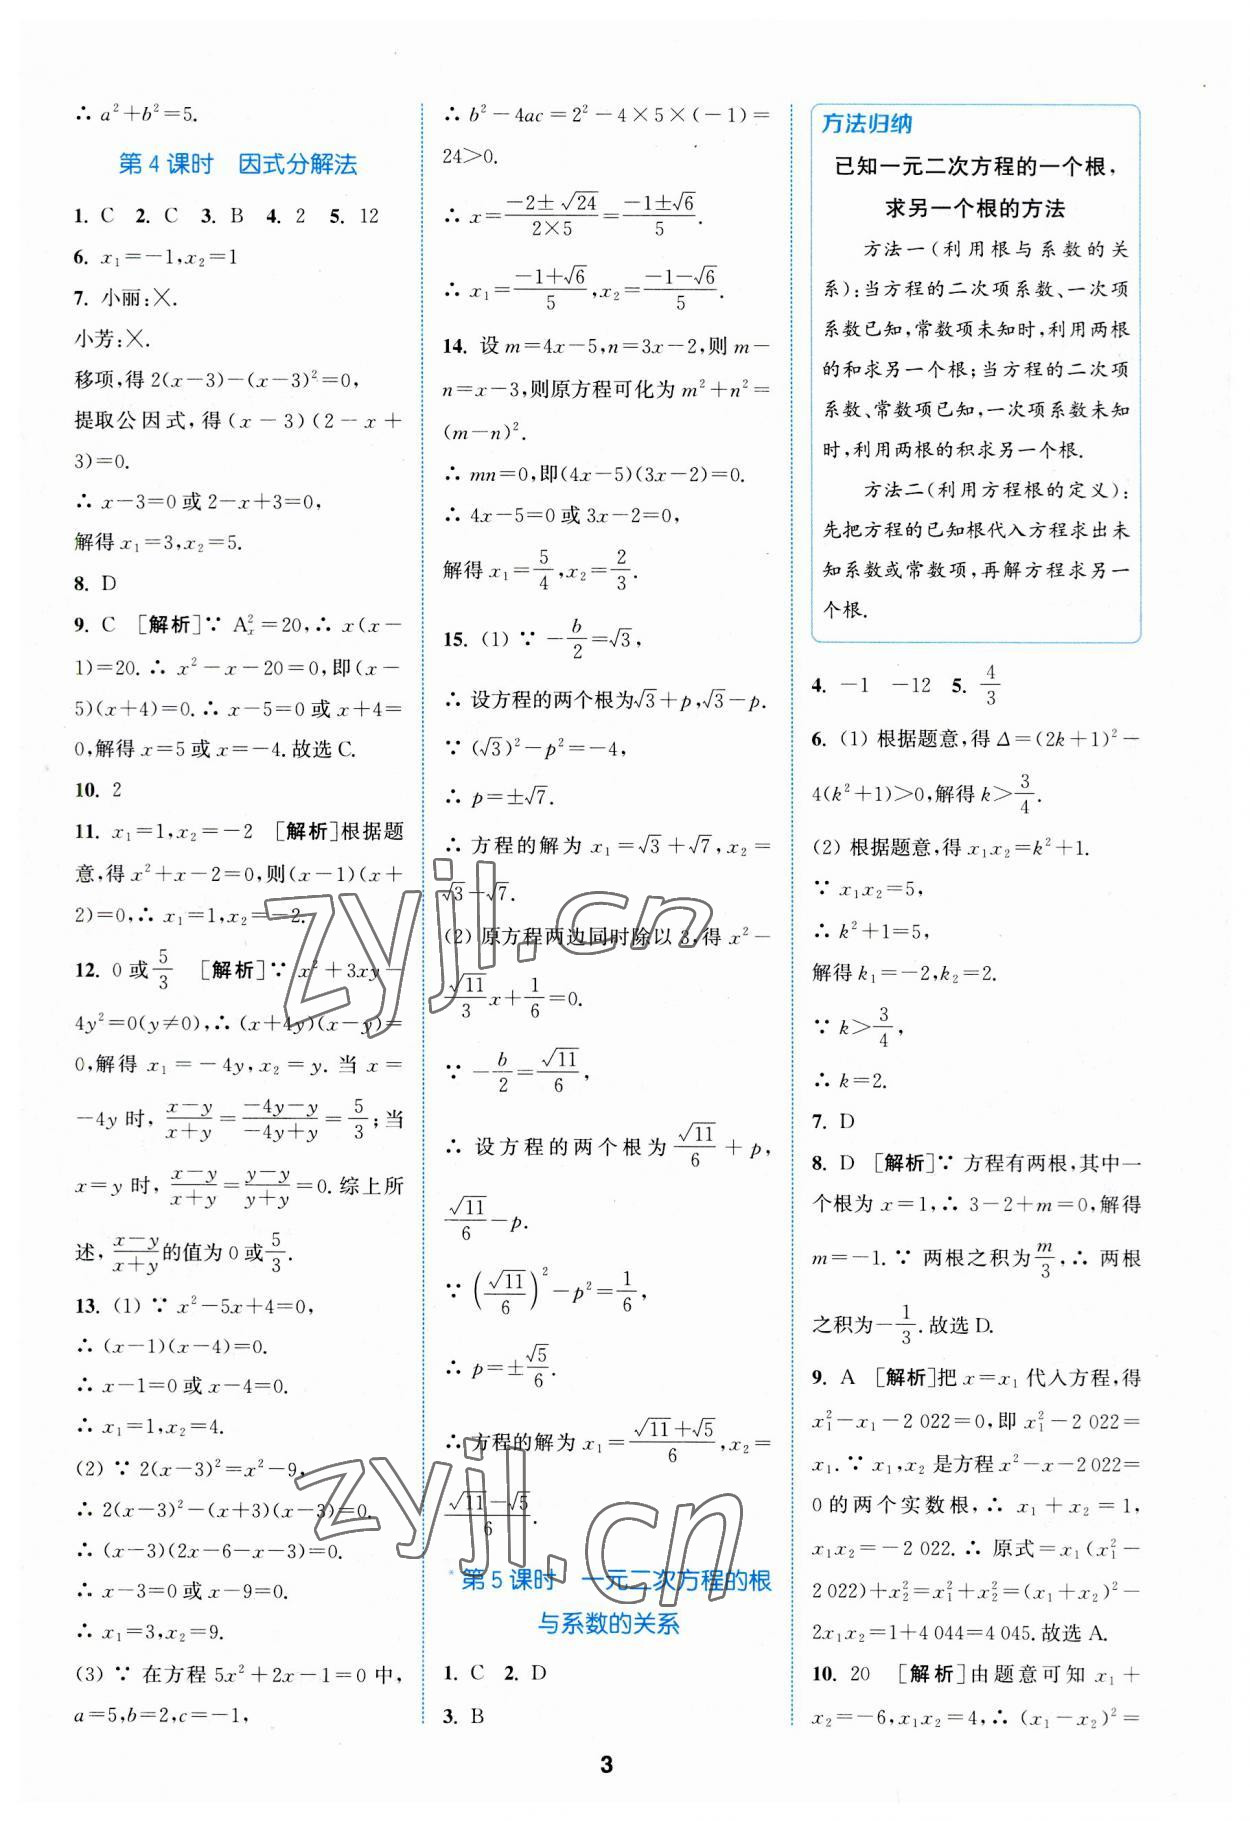 ∴ a²+b²=5.
第 4 课时　因式分解法
1. C　2. C　3. B　4. 2　5. 12
6. x₁=-1,x₂=1
7. 小丽:×.
小芳:×.
移项,得 2(x-3)-(x-3)²=0,
提取公因式, 得 (x-3)(2-x+
3)=0.
∴ x-3=0 或 2-x+3=0,
解得 x₁=3,x₂=5.
8. D
9. C　[解析]∵ A²ₓ=20,∴ x(x-
1)=20. ∴ x²-x-20=0,即(x-
5)(x+4)=0. ∴ x-5=0 或 x+4=
0,解得 x=5 或 x=-4. 故选 C.
10. 2
11. x₁=1,x₂=-2　[解析]根据题
意,得 x²+x-2=0,则(x-1)(x+
2)=0,∴ x₁=1,x₂=-2.
12. 0 或 5/3　[解析]∵ x²+3xy-
4y²=0(y≠0),∴ (x+4y)(x-y)=
0,解得 x₁=-4y,x₂=y. 当 x=
-4y 时, (x-y)/(x+y)=(-4y-y)/(-4y+y)=5/3;当
x=y 时, (x-y)/(x+y)=(y-y)/(y+y)=0. 综上所
述, (x-y)/(x+y)的值为 0 或 5/3.
13. (1) ∵ x²-5x+4=0,
∴ (x-1)(x-4)=0.
∴ x-1=0 或 x-4=0.
∴ x₁=1,x₂=4.
(2) ∵ 2(x-3)²=x²-9,
∴ 2(x-3)²-(x+3)(x-3)=0.
∴ (x-3)(2x-6-x-3)=0.
∴ x-3=0 或 x-9=0.
∴ x₁=3,x₂=9.
(3) ∵ 在方程 5x²+2x-1=0 中,
a=5,b=2,c=-1,
∴ b²-4ac=2²-4×5×(-1)=
24>0.
∴ x=(-2±√24)/(2×5)=(-1±√6)/5.
∴ x₁=(-1+√6)/5,x₂=(-1-√6)/5.
14. 设 m=4x-5,n=3x-2,则 m-
n=x-3,则原方程可化为 m²+n²=
(m-n)².
∴ mn=0,即(4x-5)(3x-2)=0.
∴ 4x-5=0 或 3x-2=0,
解得 x₁=5/4,x₂=2/3.
15. (1) ∵ -b/2=√3,
∴ 设方程的两个根为√3+p,√3-p.
∵ (√3)²-p²=-4,
∴ p=±√7.
∴ 方程的解为 x₁=√3+√7,x₂=
√3-√7.
(2) 原方程两边同时除以 3,得 x²-
√11/3 x+1/6=0.
∵ -b/2=√11/6,
∴ 设方程的两个根为 √11/6+p,
√11/6-p.
∵ (√11/6)²-p²=1/6,
∴ p=±√5/6.
∴ 方程的解为 x₁=(√11+√5)/6,x₂=
(√11-√5)/6.
*第 5 课时　一元二次方程的根
与系数的关系
1. C　2. D
3. B
方法归纳
已知一元二次方程的一个根,
求另一个根的方法
方法一(利用根与系数的关
系):当方程的二次项系数、一次项
系数已知,常数项未知时,利用两根
的和求另一个根;当方程的二次项
系数、常数项已知,一次项系数未知
时,利用两根的积求另一个根.
方法二(利用方程根的定义):
先把方程的已知根代入方程求出未
知系数或常数项,再解方程求另一
个根.
4. -1　-12　5. 4/3
6. (1) 根据题意,得 Δ=(2k+1)²-
4(k²+1)>0,解得 k>3/4.
(2) 根据题意,得 x₁x₂=k²+1.
∵ x₁x₂=5,
∴ k²+1=5,
解得 k₁=-2,k₂=2.
∵ k>3/4,
∴ k=2.
7. D
8. D　[解析]∵ 方程有两根,其中一
个根为 x=1,∴ 3-2+m=0,解得
m=-1. ∵ 两根之积为 m/3,∴ 两根
之积为-1/3. 故选 D.
9. A　[解析]把 x=x₁ 代入方程,得
x₁²-x₁-2 022=0,即 x₁²-2 022=
x₁. ∵ x₁,x₂ 是方程 x²-x-2 022=
0 的两个实数根,∴ x₁+x₂=1,
x₁x₂=-2 022. ∴ 原式=x₁(x₁²-
2 022)+x₂²=x₁²+x₂²=(x₁+x₂)²-
2x₁x₂=1+4 044=4 045. 故选 A.
10. 20　[解析]由题意可知 x₁+
x₂=-6,x₁x₂=4,∴ (x₁-x₂)²=
3
zyjl.cn
zyjl.cn